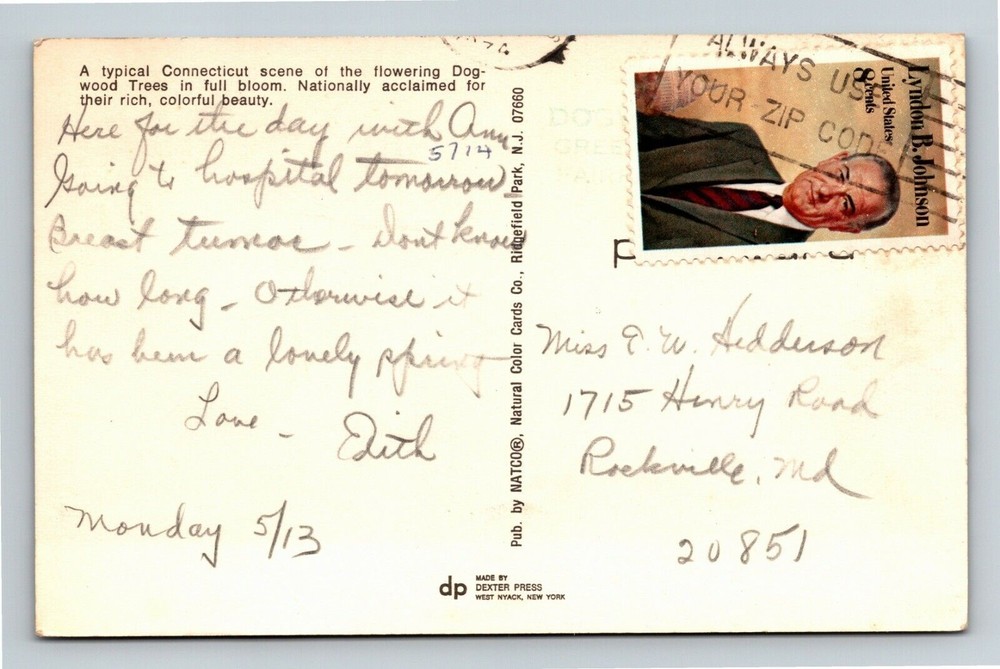 A typical Connecticut scene of the flowering Dog-
wood Trees in full bloom. Nationally acclaimed for
their rich, colorful beauty.
Here for the day with Ann
5714
Going to hospital tomorrow
Breast tumor – Dont know
how long – Otherwise it
has been a lonely spring
Love –
Edith
Monday 5/13
Pub. by NATCO®, Natural Color Cards Co., Ridgefield Park, N.J. 07660
dp
MADE BY
DEXTER PRESS
WEST NYACK, NEW YORK
ALWAYS USE
YOUR ZIP CODE
Lyndon B. Johnson
United States
8cents
Miss E. W. Hedderson
1715 Henry Road
Rockville, Md
20851